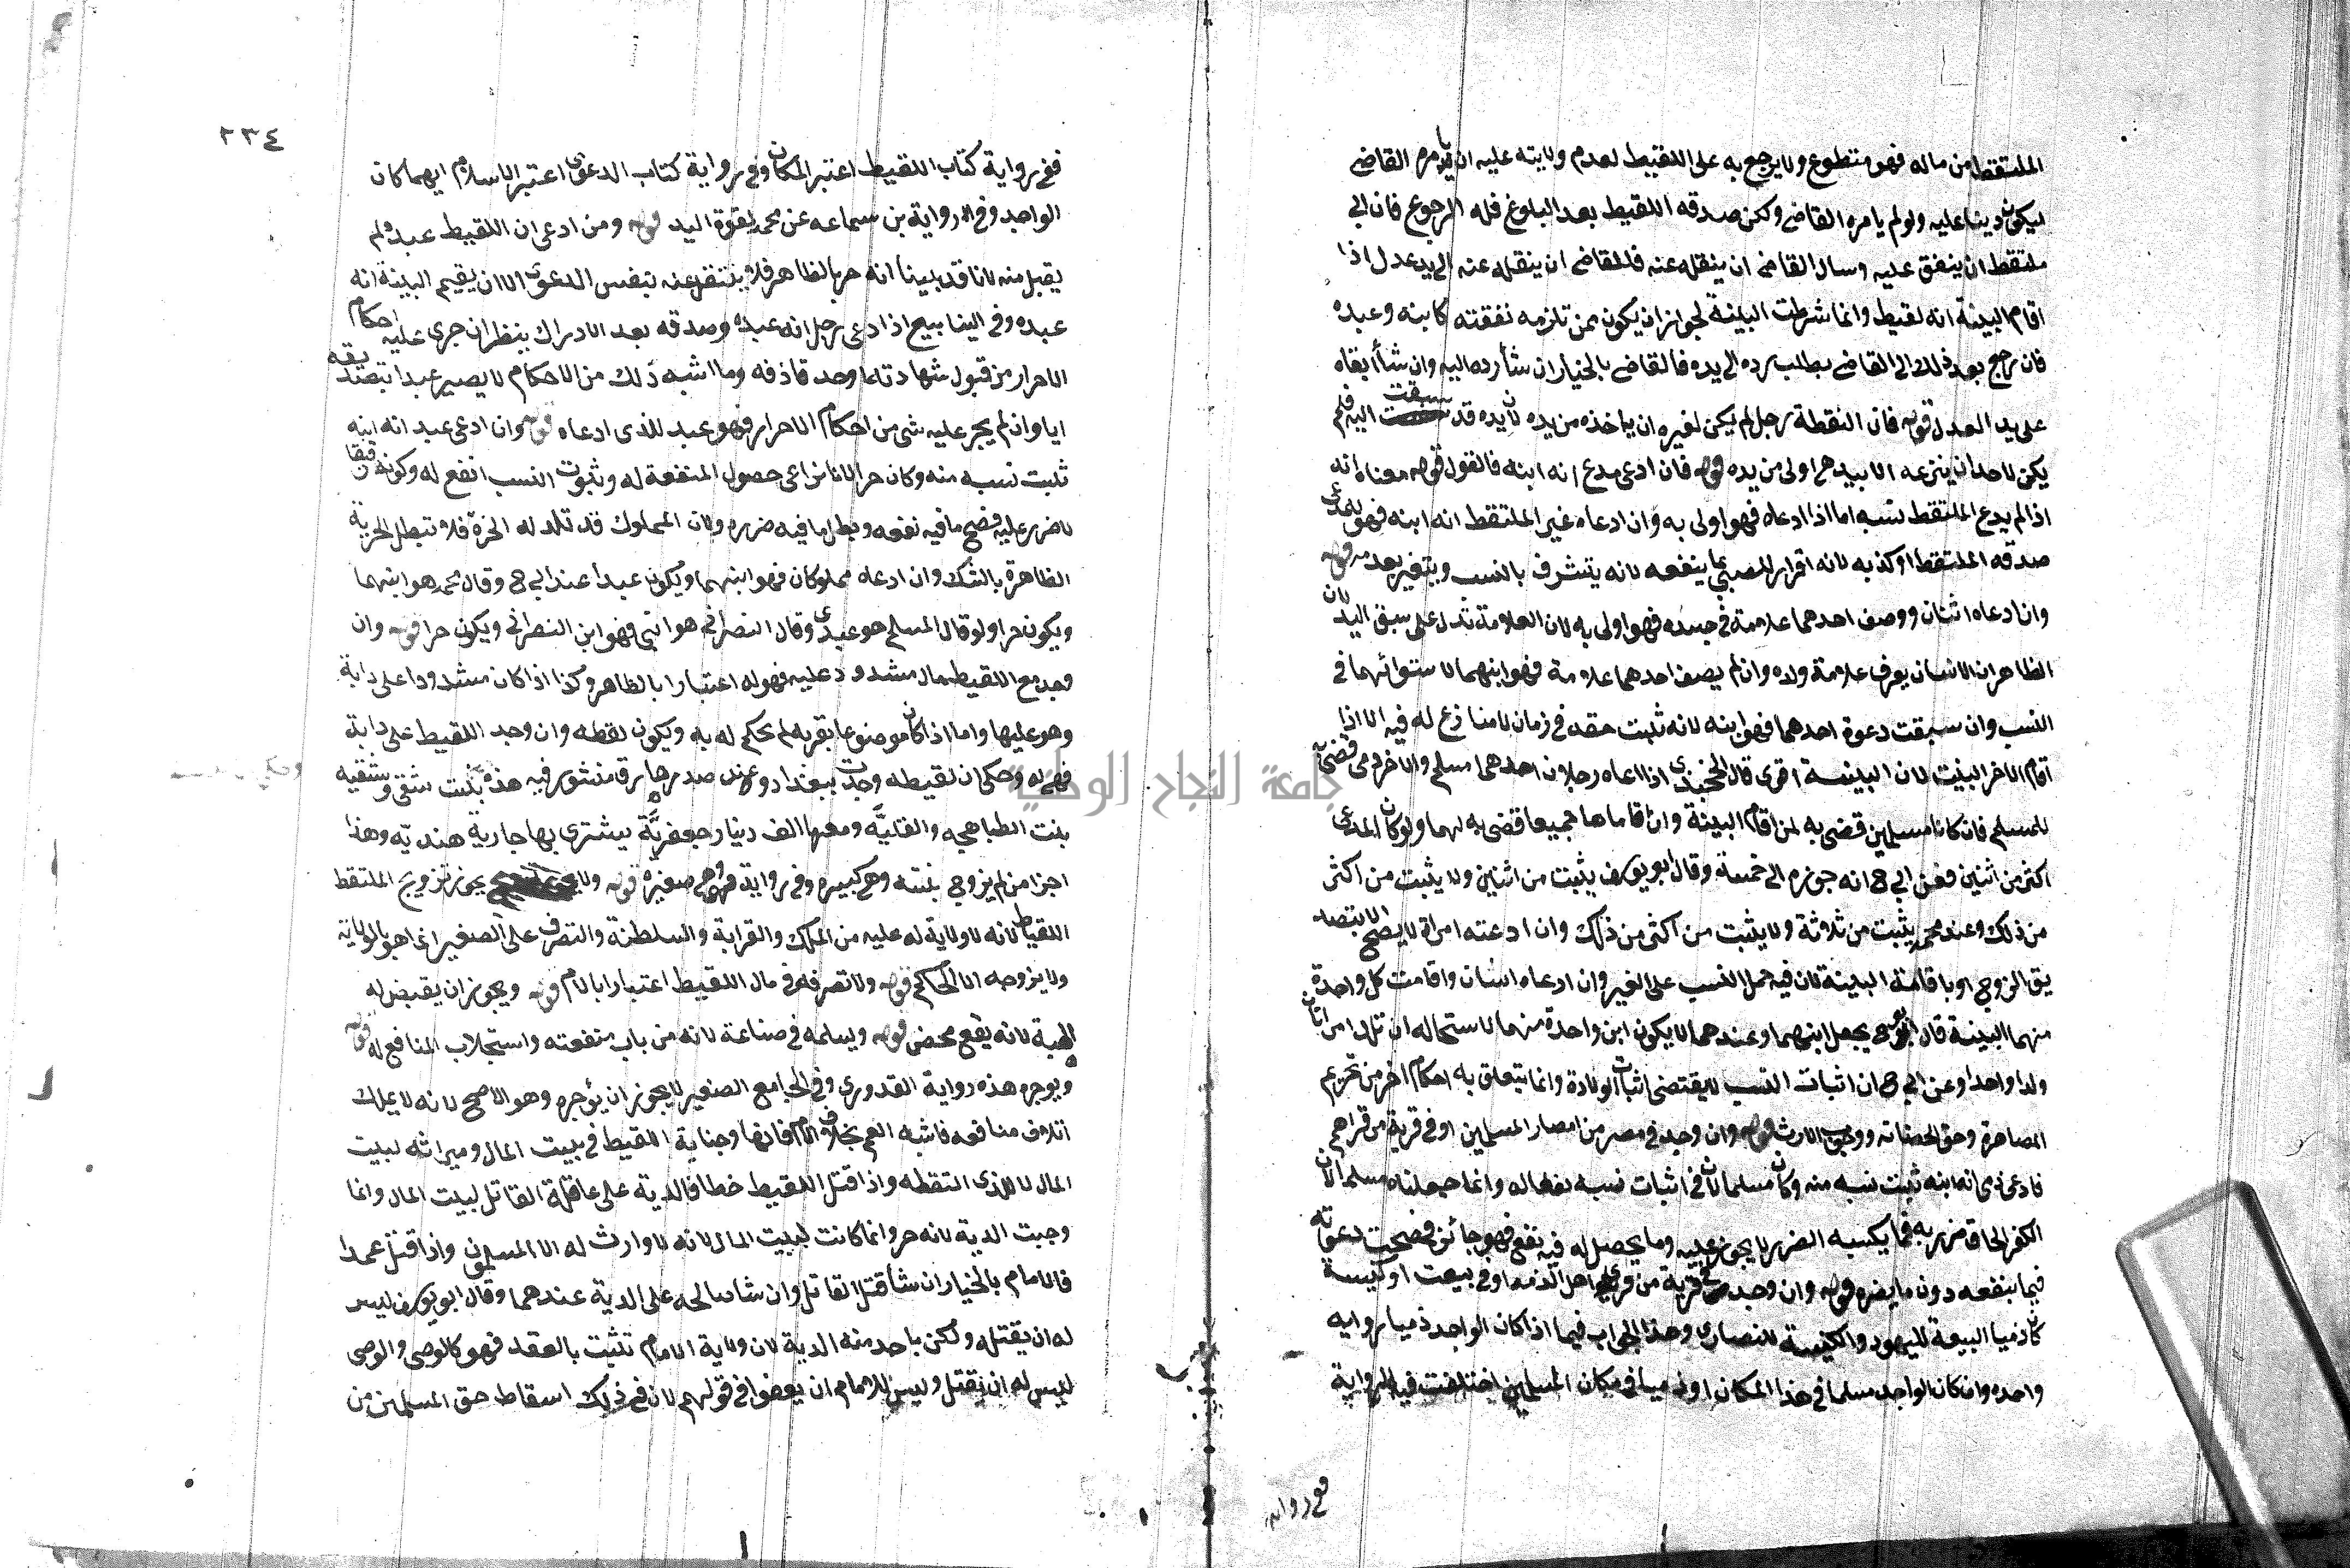 الملتقط من ماله فهو متطوع ولا يرجع به على اللقيط لعدم ولايته عليه الا ان يامره القاضي
ليكون دينا عليه ولو لم يامره القاضي ولكن صدقه اللقيط بعد البلوغ فله الرجوع فان ابى
ملتقط ان ينفق عليه وسال القاضي ان ينقله عنه فللقاضي ان ينقله عنه الى يد عدل اذا
اقام البينة انه لقيط وانما شرطت البينة لجواز ان يكون ممن تلزمه نفقته كابنه وعبده
فان رجع بعد ذلك الى القاضي بطلب رده الى يده فالقاضي بالخيار ان شأ رده اليه وان شأ ابقاه
على يد العدل قوله فان التقطة رجل لم يكن لغيره ان ياخذه من يده لان يده قد سبقت اليه فلم
يكن لاحد ان ينزعه الا بيد هي اولى من يده قوله فان ادعى مدع انه ابنه فالقول قوله معناه انه
اذا لم يدع الملتقط نسبه اما اذا ادعاه فهو اولى به وان ادعاه غير الملتقط انه ابنه فهو للمدعى
صدقه الملتقط او كذبه لانه اقرار للصبي بما ينفعه لانه يتشرف بالنسب ويتغير بعدمه قوله
وان ادعاه اثنان ووصف احدهما علامة في جسده فهو اولى به لان العلامة تدل على سبق اليد لان
الظاهر ان الانسان يعرف علامة ولده وان لم يصف احدهما علامة فهو ابنهما لاستوائهما في
النسب وان سبقت دعوة احدهما فهو ابنه لانه ثبت حقه في زمان لا منازع له فيه الا اذا
اقام الاخر البينة لان البينة اقوى قال الخجندي اذا ادعاه رجلان احدهما مسلم والاخر ذمي قضى
للمسلم فان كانا مسلمين قضى به لمن اقام البينة وان اقاماها جميعا قضى به لهما ولو كان المدعى
اكثر من اثنين فعن ابي ح انه جوزه الى خمسة وقال ابو يوسف يثبت من اثنين ولا يثبت من اكثر
من ذلك وعند محمد يثبت من ثلاثة ولا يثبت من اكثر من ذلك وان ادعته امراة لا يصح الا بتصد
يق الزوج او باقامة البينة لان فيه حمل النسب على الغير وان ادعاه اثنان واقامت كل واحدة
منهما البينة قال ابو ح يجعل ابنهما وعندهما لا يكون ابن واحدة منهما لاستحاله ان تلد امراتان
ولدا واحدا وعن ابي ح ان اثبات النسب لا يقتضى اثبات الولادة وانما يتعلق به احكام اخر من تحريم
المصاهرة وحق الحضانة ووجوب الارث قوله وان وجد في مصر من امصار المسلمين او في قرية من قراهم
فادعى ذمي انه ابنه ثبت نسبه منه وكان مسلما لان في اثبات نسبه نفعا له وانما جعلناه مسلما لان
الكفر الحاق ضرر به فما يكسبه الضرر لا يجوز عليه وما يحصل له فيه نفع فهو جائز فصحت دعوته
فيما ينفعه دون ما يضره قوله وان وجد في قرية من قرى اهل الذمه او في بيعت او كنيسة
كان ذميا البيعة لليهود والكنيسة للنصارى وهذا الجواب فيما اذا كان الواجد ذميا روايه
واحده وان كان الواجد مسلما في هذا المكان او ذميا في مكان المسلمين اختلفت فيه الرواية
ففي رواية
٢٣٤
ففي رواية كتاب اللقيط اعتبر المكان وفي رواية كتاب الدعوى اعتبر الاسلام ايهما كان
الواجد وفي رواية بن سماعه عن محمد بقوة اليد قوله ومن ادعى ان اللقيط عبده لم
يقبل منه لانا قد بينا انه حر بالظاهر فلا ينتقل عنه بنفس الدعوى الا ان يقيم البينة انه
عبده وفي الينابيع اذا ادعى رجل انه عبده وصدقه بعد الادراك ينظر ان جرى عليه احكام
الاحرار من قبول شهادته او حد قاذفه وما اشبه ذلك من الاحكام لا يصير عبدا بتصديقه
اياه وان لم يجر عليه شي من احكام الاحرار فهو عبد للذى ادعاه قوله وان ادعى عبد انه ابنه
ثبت نسبه منه وكان حرا لانا نراعى حصول المنفعة له وثبوت النسب انفع له وكونه رقيقا
لاضرر عليه فصح ما فيه نفعه وبطل ما فيه ضرره ولان المملوك قد تلد له الحرة فلا تبطل الحرية
الظاهرة بالشك وان ادعاه مملوكان فهو ابنهما ويكون عبدا عند ابي ح وقال محمد هو ابنهما
ويكون حرا ولو قال المسلم هو عبدى وقال النصراني هو ابني فهو ابن النصراني ويكون حرا قوله وان
وجد مع اللقيط مال مشدود عليه فهو له اعتبارا بالظاهر وكذا اذا كان مشدودا على دابة
وهو عليها واما اذا كان موضوعا بقربه لم يحكم له به ويكون لقطه وان وجد اللقيط على دابة
فهي له وحكى ان لقيطه وجدت ببغداد وعند صدرها رق منشور فيه هذه بنت شقى وشقيه
بنت الطباهجه والقليَّه ومعها الف دينار جعفريَّة يشترى بها جارية هنديّه وهذا
اجزا من لم يزوج بنته وهي كبيره وفي رواية وهي صغيره قوله ولا يجوز تزويج الملتقط
اللقيط لانه لا ولاية له عليه من الملك والقرابة والسلطنة والتصرف على الصغير انما هو بالولاية
ولا يزوجه الا الحاكم قوله ولا تصرفه في مال اللقيط اعتبارا بالام قوله ويجوز ان يقبض له
الهبة لانه نفع محض قوله ويسلمه في صناعة لانه من باب منفعته واستجلاب المنافع له قوله
ويوجره هذه رواية القدوري وفي الجامع الصغير لا يجوز ان يؤجره وهو الاصح لانه لا يملك
اتلاف منافعه فاشبه العم بخلاف الام فانها وجناية اللقيط في بيت المال وميراثه لبيت
المال لا للذى التقطه واذا قتل اللقيط خطا فالدية على عاقلة القاتل لبيت المال وانما
وجبت الدية لانه حر وانما كانت لبيت المال لانه لا وارث له الا المسلمون واذا قتل عمدا
فالامام بالخيار ان شأ قتل القاتل وان شا صالحه على الدية عندهما وقال ابو يوسف ليس
له ان يقتله ولكن ياخد منه الدية لان ولاية الامام تثبت بالعقد فهو كالوصي والوصي
ليس له ان يقتل وليس للامام ان يعفوا في قولهم لان في ذلك اسقاط حق المسلمين من
جامعة النجاح الوطنية